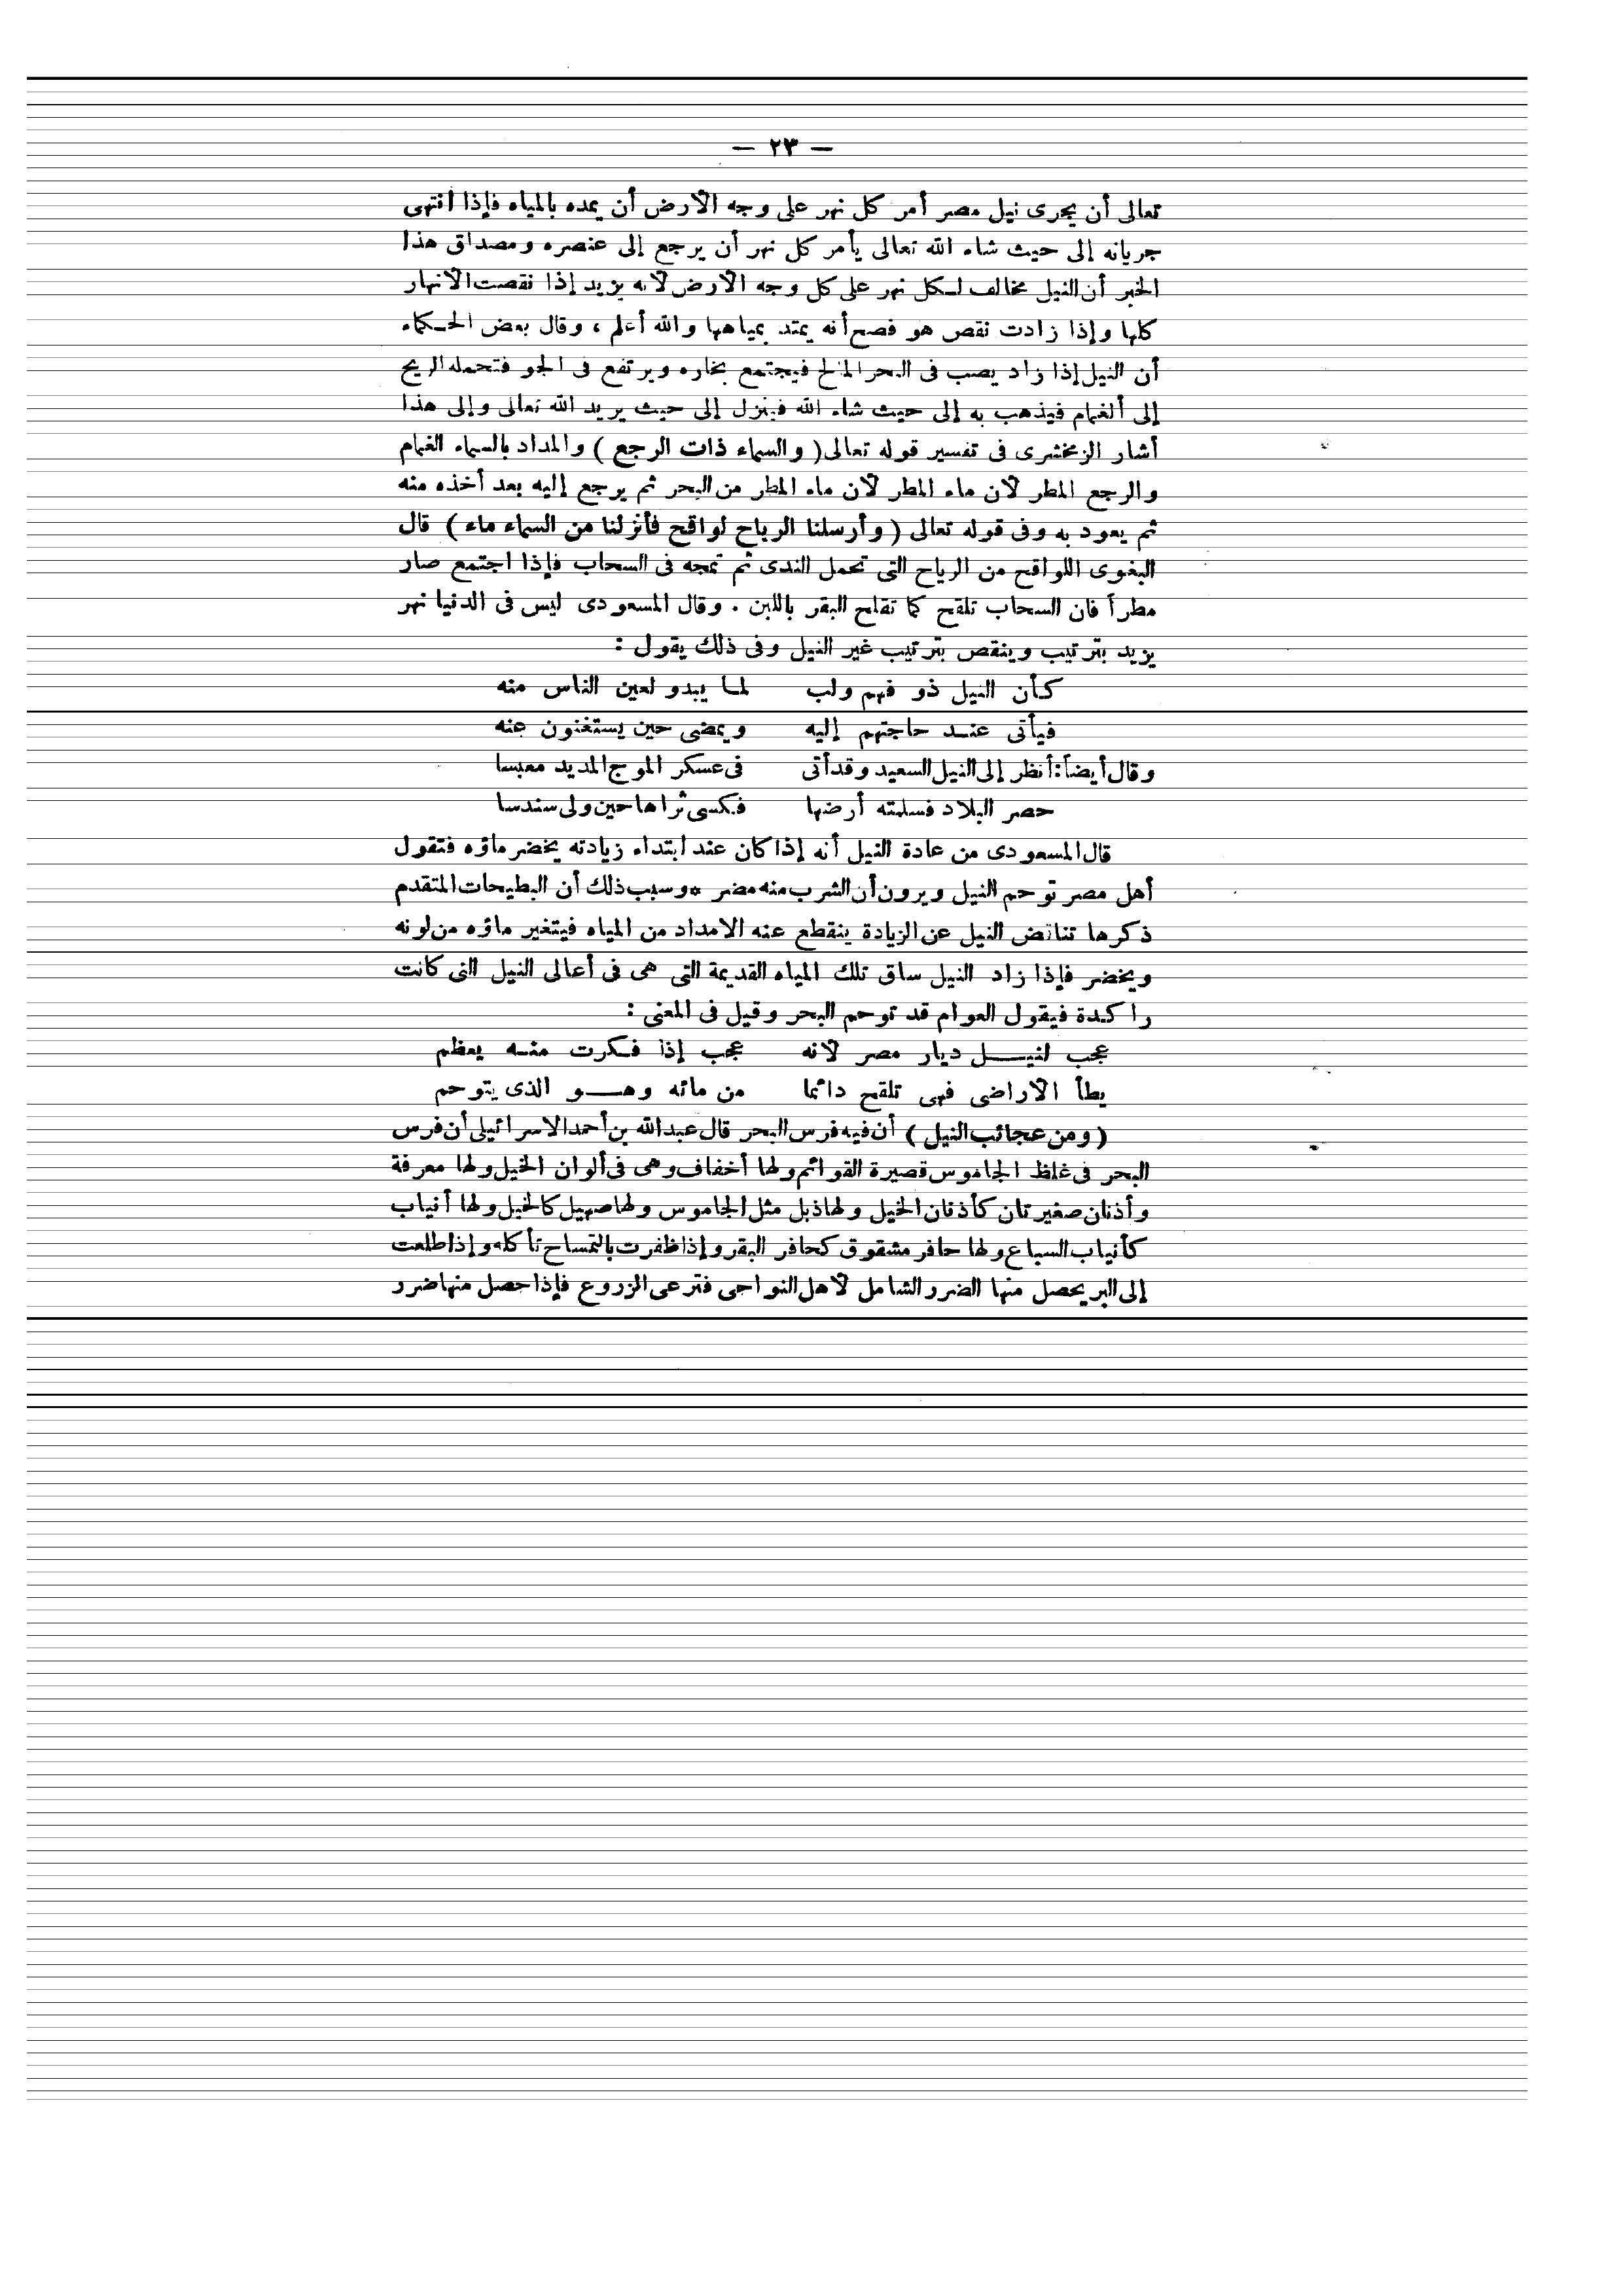 — ٢٣ —
تعالى أن يجرى نيل مصر أمر كل نهر على وجه الأرض أن يمده بالمياه فإذا انتهى
جريانه إلى حيث شاء الله تعالى يأمر كل نهر أن يرجع إلى عنصره ومصداق هذا
الخبر أن النيل مخالف لكل نهر على كل وجه الارض لانه يزيد إذا نقصت الانهار
كلها وإذا زادت نقص هو فصح أنه يمتد بمياهها والله أعلم ، وقال بعض الحكماء
أن النيل إذا زاد يصب فى البحر المالح فيجتمع بخاره ويرتفع فى الجو فتحمله الريح
إلى ألغمام فيذهب به إلى حيث شاء الله فينزل إلى حيث يريد الله تعالى وإلى هذا
أشار الزمخشرى فى تفسير قوله تعالى ( والسماء ذات الرجع ) والمداد بالسماء الغمام
والرجع المطر لأن ماء المطر لأن ماء المطر من البحر ثم يرجع إليه بعد أخذه منه
ثم يعود به وفى قوله تعالى ( وأرسلنا الرياح لواقح فأنزلنا من السماء ماء ) قال
البغوى اللواقح من الرياح التى تحمل الندى ثم تمجه فى السحاب فإذا اجتمع صار
مطراً فان السحاب تلقح كما تقلح البقر باللبن . وقال المسعودى ليس فى الدنيا نهر
يزيد بترتيب وينقص بترتيب غير النيل وفى ذلك يقول :
كأن النيل ذو فهم ولب لما يبدو لعين الناس منه
فيأتى عند حاجتهم إليه ويمضى حين يستغنون عنه
وقال أيضاً : أنظر إلى النيل السعيد وقد أتى فى عسكر الموج المديد معبسا
حصر البلاد فسلمته أرضها فكسى ثراها حين ولى سندسا
قال المسعودى من عادة النيل أنه إذا كان عند ابتداء زيادته يخضر ماؤه فتقول
أهل مصر توحم النيل ويرون أن الشرب منه مضر * وسبب ذلك أن البطيحات المتقدم
ذكرها تناقض النيل عن الزيادة ينقطع عنه الامداد من المياه فيتغير ماؤه من لونه
ويخضر فإذا زاد النيل ساق تلك المياه القديمة التى هى فى أعالى النيل التى كانت
راكدة فيقول العوام قد توحم البحر وقيل فى المعنى :
عجب لنيل ديار مصر لانه عجب إذا فكرت منه يعظم
يطأ الاراضى فهى تلقح دائما من مائه وهو الذى يتوحم
( ومن عجائب النيل ) أن فيه فرس البحر قال عبد الله بن أحمد الاسرائيلى أن فرس
البحر فى غلظ الجاموس قصيرة القوائم ولها أخفاف وهى فى ألوان الخيل ولها معرفة
وأذنان صغيرتان كأذنان الخيل ولها ذبل مثل الجاموس ولها صهيل كالخيل ولها أنياب
كأنياب السباع ولها حافر مشقوق كحافر البقر وإذا ظفرت بالتمساح تأكله وإذا طلعت
إلى البر يحصل منها الضرر الشامل لاهل النواحى فترعى الزروع فإذا حصل منها ضرر